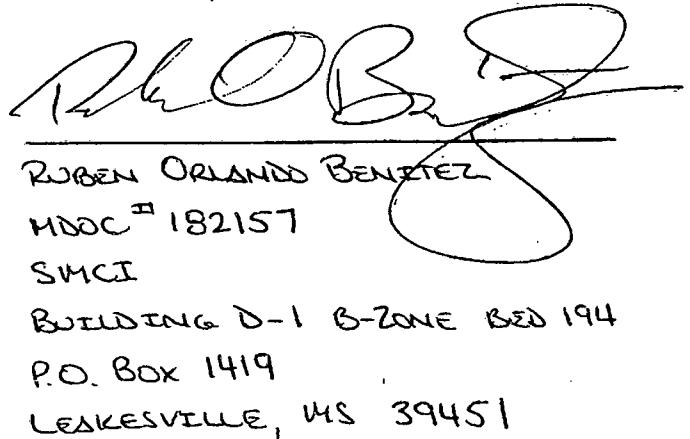 RUBEN ORLANDO BENITEZ
MDOC # 182157
SMCI
BUILDING D-1 B-ZONE BED 194
P.O. BOX 1419
LEAKESVILLE, MS 39451